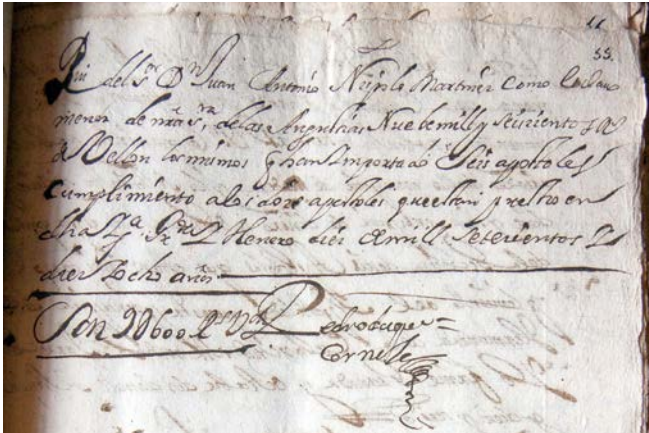 11
55.
Rvi del Sr Dn Juan Antonio Martines Como
menor de nra Sra, de las Angustias Nuebe mill y Seiscientos Rs
de Vellon los mismos q han Importado Seis apostoles
Cumplimiento a los doze apostoles que estan puestos en
dha Yga. Grda Y Henero diez de mill Setecientos Y
diez Y ocho años
Son 9 600 Rs Vn Pedro duque
Cornejo